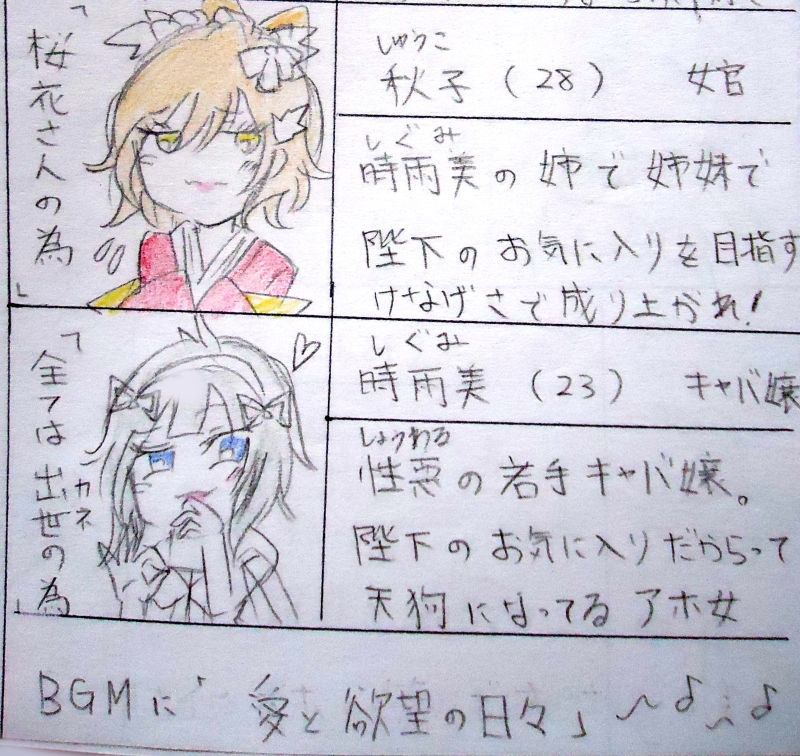 「桜花さんの為」
しゅうこ
秋子（28） 女官
しぐみ
時雨美の姉で姉妹で
陛下のお気に入りを目指す
けなげさで成り上がれ！
「全ては出世の為」
カネ
しぐみ
時雨美（23） キャバ嬢
しょうわる
性悪の若手キャバ嬢。
陛下のお気に入りだからって
天狗になってるアホ女
BGMに「愛と欲望の日々」～♪～♪